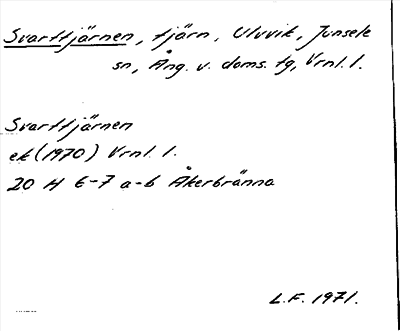 Svarttjärnen, tjärn, Uluvik, Junsele
sn, Ång. v. doms. tg, Vrnl. l.
Svarttjärnen
ek (1970) Vrnl. l.
20 H 6-7 a-b Åkerbränna
L.F. 1971.